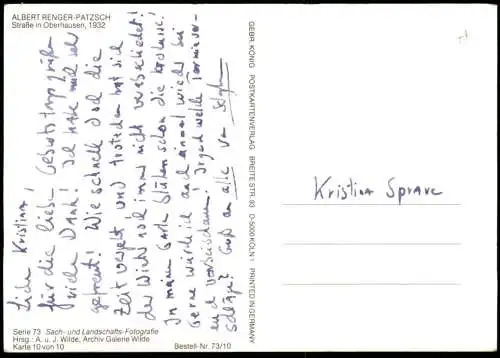 ALBERT RENGER-PATZSCH
Straße in Oberhausen, 1932
Liebe Kristina!
für die lieben Geburtstagsgrüße
vielen Dank! Ich habe mich sehr
gefreut! Wie schnell doch die
Zeit vergeht und trotzdem hat sich
der Winter noch immer nicht verabschiedet!
In meinem Garten blühen schon die Krokusse!
Gerne würde ich auch einmal wieder bei
euch vorbeischauen! Irgend welche Terminvor-
schläge? Gruß an alle von
Serie 73 Sach- und Landschafts-Fotografie
Hrsg.: A. u. J. Wilde, Archiv Galerie Wilde
Karte 10 von 10
Bestell-Nr. 73/10
GEBR. KÖNIG POSTKARTENVERLAG BREITE STR. 93 D-5000 KÖLN 1 PRINTED IN GERMANY
Kristina Sprave